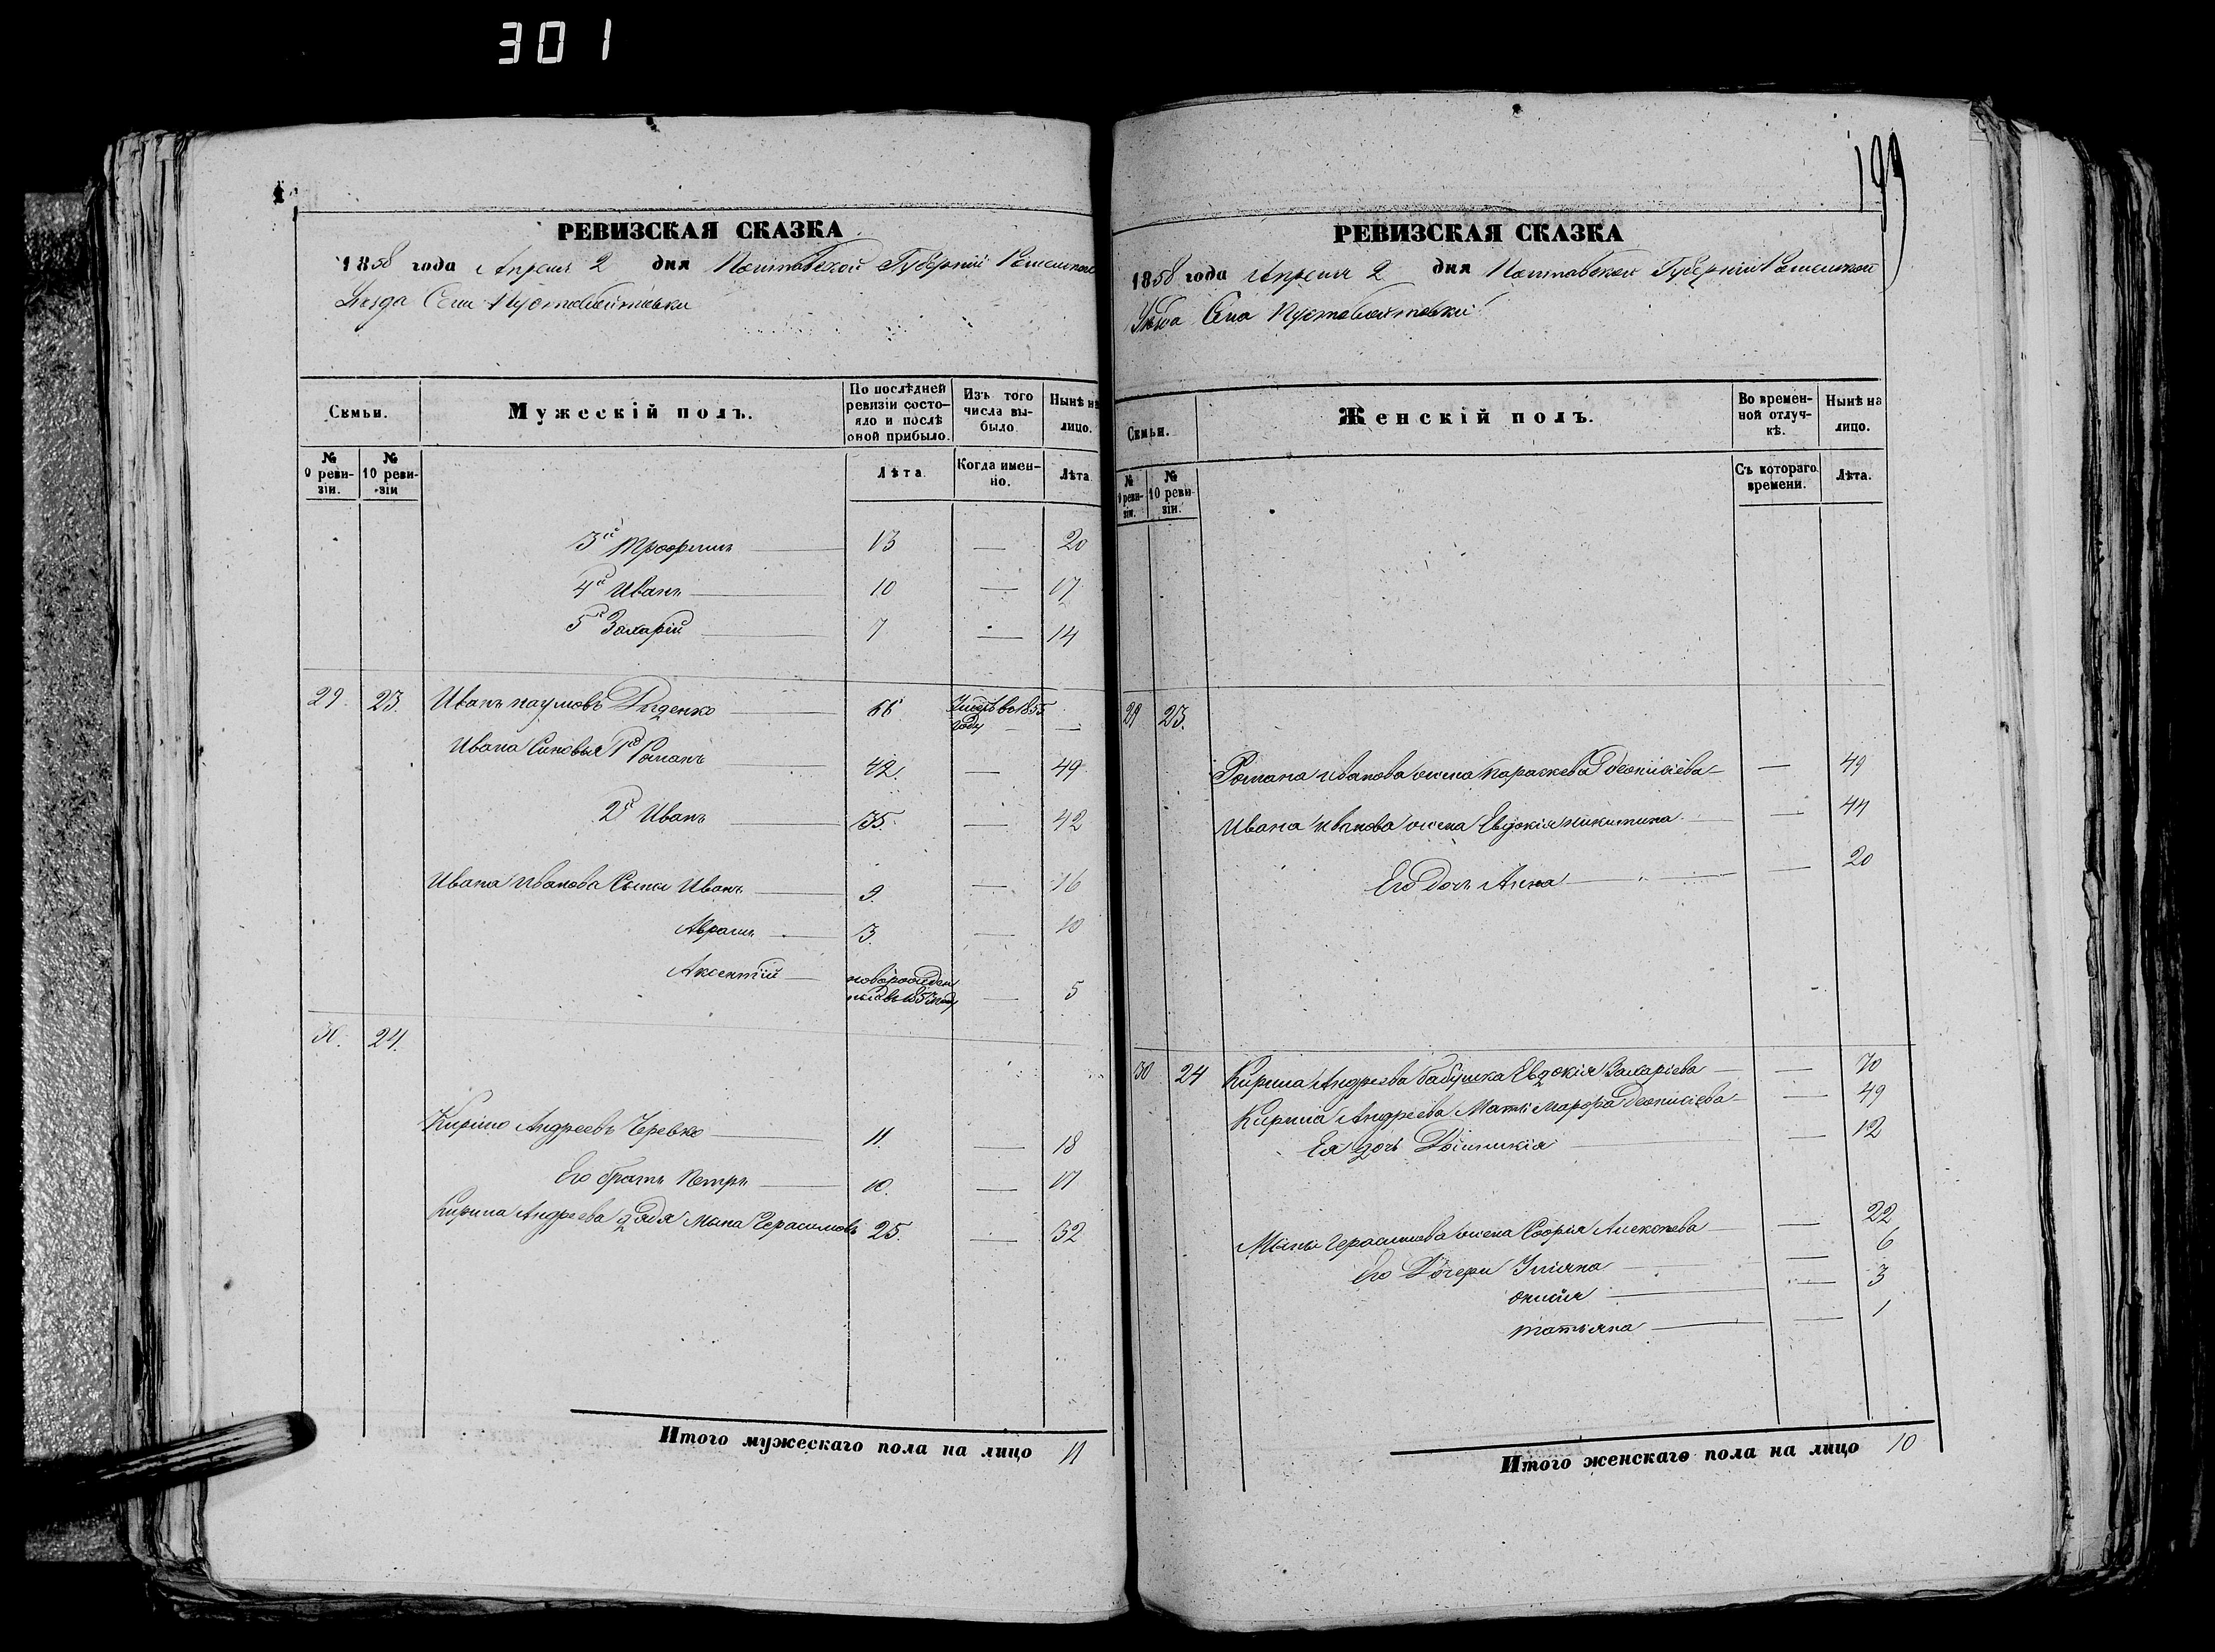 301
РЕВИЗСКАЯ СКАЗКА
1858 года Апреля 2 дня Полтавской Губерніи
Уезда Села Пустовойтовки
Семьи.
Мужескій полъ.
По послѣдней ревизіи состояло и послѣ оной прибыло.
Изъ того числа выбыло.
Нынѣ на лицо.
№ 9 ревизіи.
№ 10 ревизіи
Лѣта
Когда именно.
Лѣта
3й Трофимъ 13 — 20
4й Иванъ 10 — 17
5й Захарій 7 — 14
29. 23. Иванъ Наумовъ Диденко 66 Умеръ въ 1855 году —
Ивана Сыновья 1й Романъ 42. — 49
2й Иванъ 35. — 42
Ивана Иванова Сыны Иванъ 9. — 16
Аврамъ 3. — 10
Аксентій новорожденный въ 1853 году — 5
30. 24.
Кирило Андреевъ Черевко 11. — 18
Его братъ Петръ 10. — 17
Кирила Андреева дядя Мина Герасимовъ 25. — 32
Итого мужескаго пола на лицо 11
199
РЕВИЗСКАЯ СКАЗКА
1858 года Апреля 2 дня Полтавской Губерніи
Уезда Села Пустовойтовки
Семьи.
Женскій полъ.
Во временной отлучкѣ.
Нынѣ на лицо.
№ 9 ревизіи.
№ 10 ревизіи.
Съ котораго времени.
Лѣта.
29 23.
Романа Иванова жена Параскева Деонисіева — 49
Ивана Иванова жена Евдокія Никитина — 44
Его дочь Анна — 20
30 24 Кирила Андреева бабушка Евдокія Захаріева — 70
Кирила Андреева Мать Марфа Деонисіева — 49
Ея дочь — 12
Мины Герасимова жена Софія Алексеева — 22
Его Дочери Уліяна — 6
Онисія — 3
Татіяна — 1
Итого женскаго пола на лицо 10